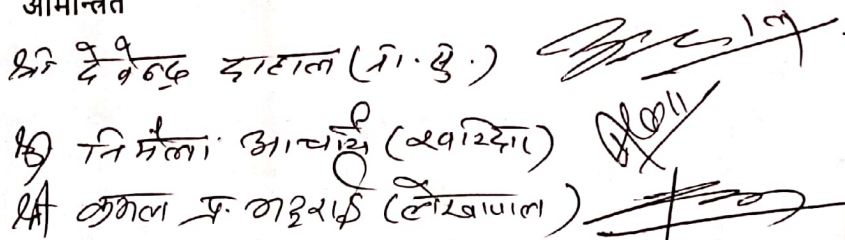 आमन्त्रित
श्री देवेन्द्र दाहाल (ना. सु.)
श्री निर्मला आचार्य (खरिदार)
श्री कमल प्र. भट्टराई (लेखापाल)